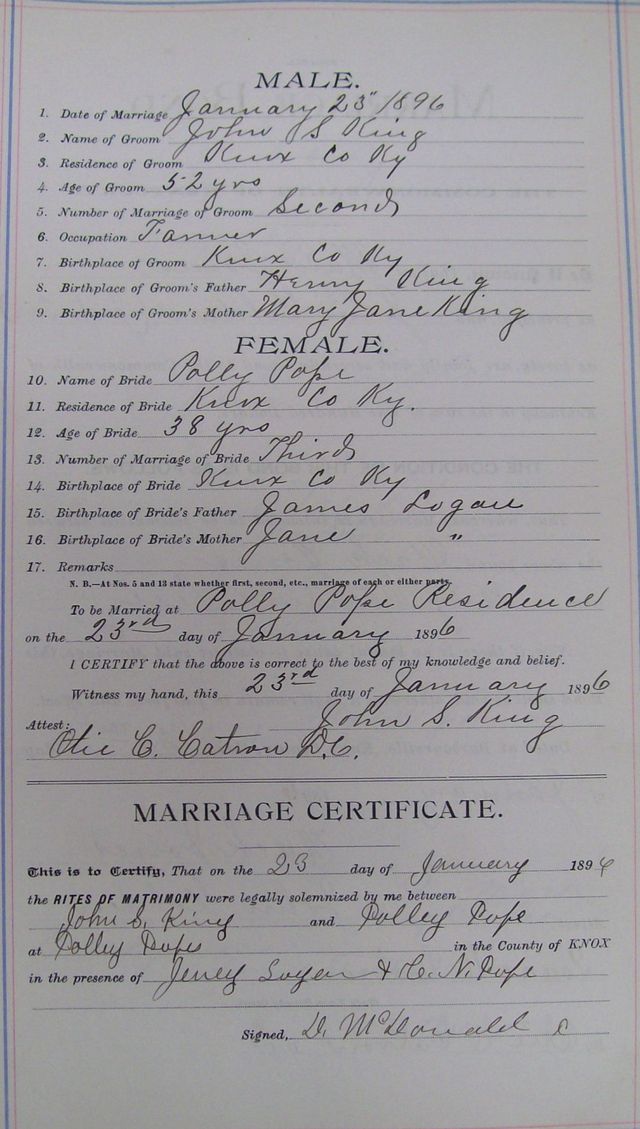 MALE.
1. Date of Marriage January 23" 1896
2. Name of Groom John S King
3. Residence of Groom Knox Co Ky
4. Age of Groom 52 yrs
5. Number of Marriage of Groom Second
6. Occupation Farmer
7. Birthplace of Groom Knox Co Ky
8. Birthplace of Groom's Father Henry King
9. Birthplace of Groom's Mother Mary Jane King
FEMALE.
10. Name of Bride Polly Pope
11. Residence of Bride Knox Co Ky.
12. Age of Bride 38 yrs
13. Number of Marriage of Bride Third
14. Birthplace of Bride Knox Co Ky
15. Birthplace of Bride's Father James Logan
16. Birthplace of Bride's Mother Jane "
17. Remarks
N. B.—At Nos. 5 and 13 state whether first, second, etc., marriage of each or either party.
To be Married at Polly Pope Residence
on the 23rd day of January 1896
I CERTIFY that the above is correct to the best of my knowledge and belief.
Witness my hand, this 23rd day of January 1896
John S. King
Attest:
Otie C. Catron D.C.
MARRIAGE CERTIFICATE.
This is to Certify, That on the 23 day of January 189
the RITES OF MATRIMONY were legally solemnized by me between
John S. King and Polley Pope
at Polley Popes in the County of KNOX
in the presence of Logan & N. Pope
Signed, D. McDonald